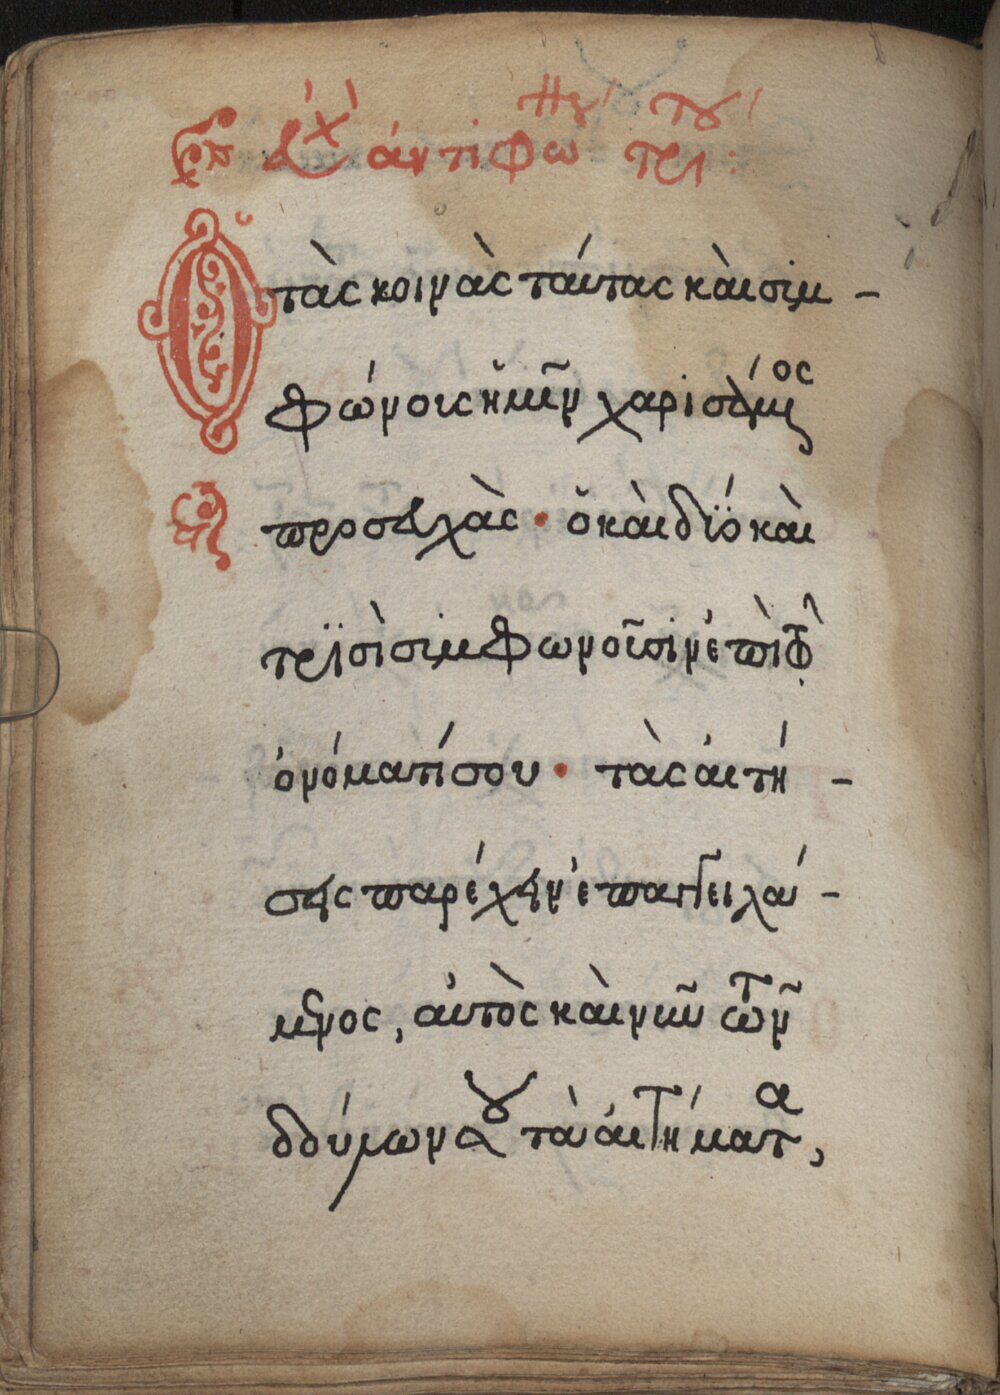 εὐχὴ ἀντιφώ του τρι:
Ὁ τὰς κοινὰς ταύτας καὶ σιμ-
φώνοις ἡμῖν χαρισάμενος
προσευχὰς· ὁ καὶ δϊό καὶ
τρϊσὶ σιμφωνοῦσιν ἐπὶ τῷ
ὀνόματί σου· τὰς αἰτή-
σεις παρέχειν ἐπαγγειλά-
μενος, αὐτὸς καὶ νῦν τῶν
δούλων σου τὰ αἰτήματα,